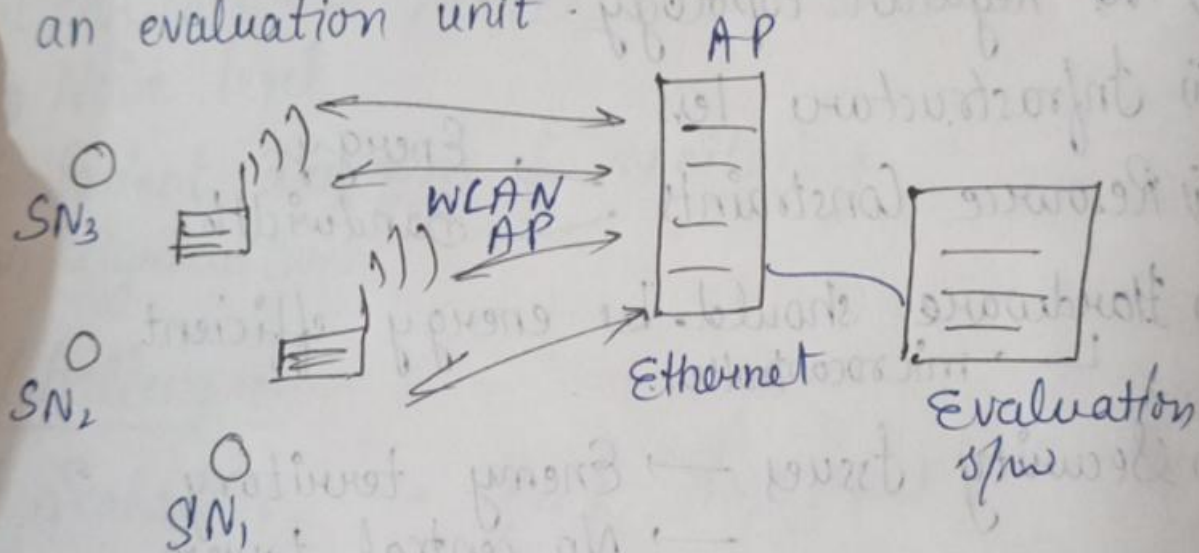 an evaluation unit.
AP
SN₃
WLAN
AP
SN₂
Ethernet
Evaluation
s/w
SN₁